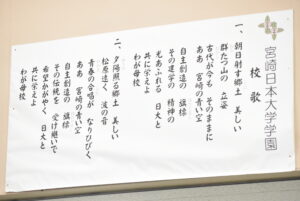 宮崎日本大学学園
校歌
一、朝日射す郷土 美しい
群たつ山の 立姿
古代が今も そのままに
ああ 宮崎の青い空
自主創造の 旗標
その建学の 精神の
光あふれる 日大と
共に栄えよ
わが母校
二、夕陽照る郷土 美しい
松原遠く 波の音
青春の合唱が なりひびく
ああ 宮崎の青い空
自主創造の 旗標
その伝統を 受け継いで
希望かがやく 日大と
共に栄えよ
わが母校